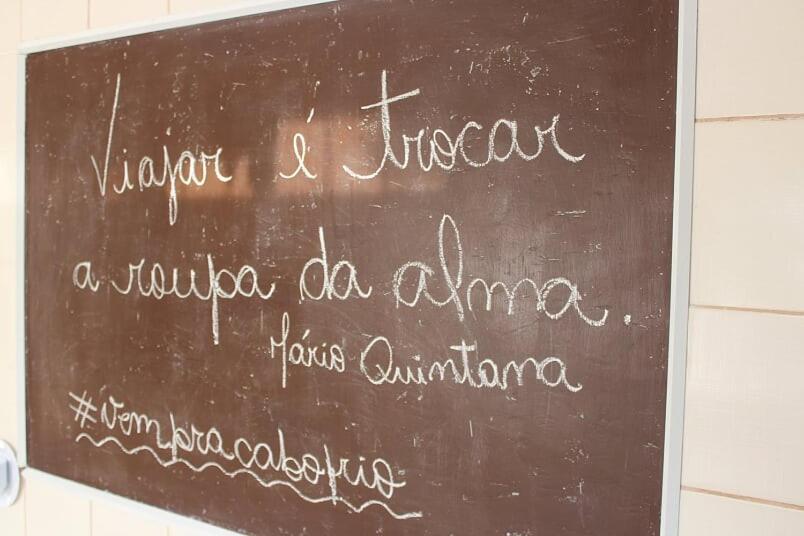 Viajar é trocar
a roupa da alma.
Mário Quintana
#vempracabofrio